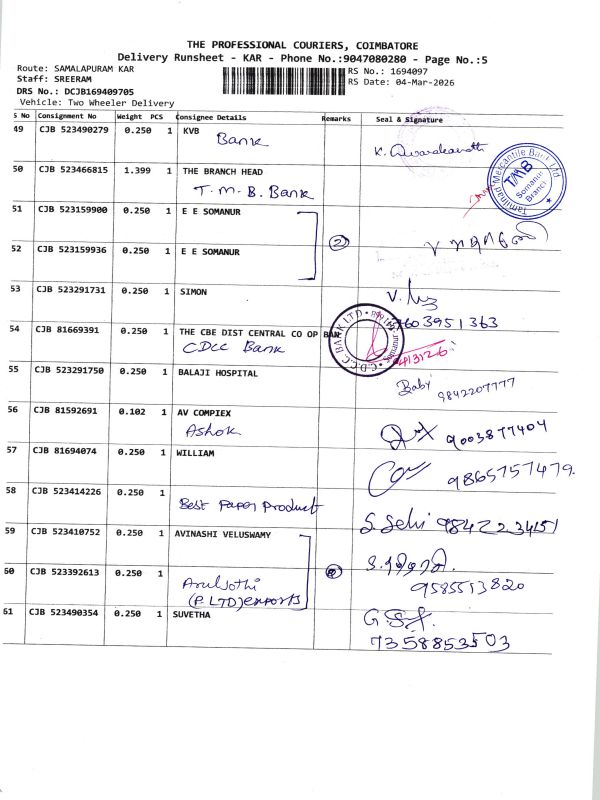 THE PROFESSIONAL COURIERS, COIMBATORE
Delivery Runsheet - KAR - Phone No.:9047080280 - Page No.:5
Route: SAMALAPURAM KAR
Staff: SREERAM
DRS No.: DCJB169409705
Vehicle: Two Wheeler Delivery
RS No.: 1694097
RS Date: 04-Mar-2026
S No Consignment No Weight PCS Consignee Details Remarks Seal & Signature
49 CJB 523490279 0.250 1 KVB
Bank
50 CJB 523466815 1.399 1 THE BRANCH HEAD
T.M.B. Bank
Tamilnad Mercantile Bank Ltd
TMB
Somanur
Branch
51 CJB 523159900 0.250 1 E E SOMANUR
2
52 CJB 523159936 0.250 1 E E SOMANUR
53 CJB 523291731 0.250 1 SIMON
7603951363
54 CJB 81669391 0.250 1 THE CBE DIST CENTRAL CO OP BAN
CDCC Bank
C.D.C.C. BANK LTD
4/3/26
55 CJB 523291750 0.250 1 BALAJI HOSPITAL
Baby 9842207777
56 CJB 81592691 0.102 1 AV COMPlEX
Ashok
9003877404
57 CJB 81694074 0.250 1 WILLIAM
9865757479.
58 CJB 523414226 0.250 1
Best Paper Product
S. Selvi 98422234151
59 CJB 523410752 0.250 1 AVINASHI VELUSWAMY
60 CJB 523392613 0.250 1
Aruljothi
(P. LTD) exports
9585513820
61 CJB 523490354 0.250 1 SUVETHA
7358853503